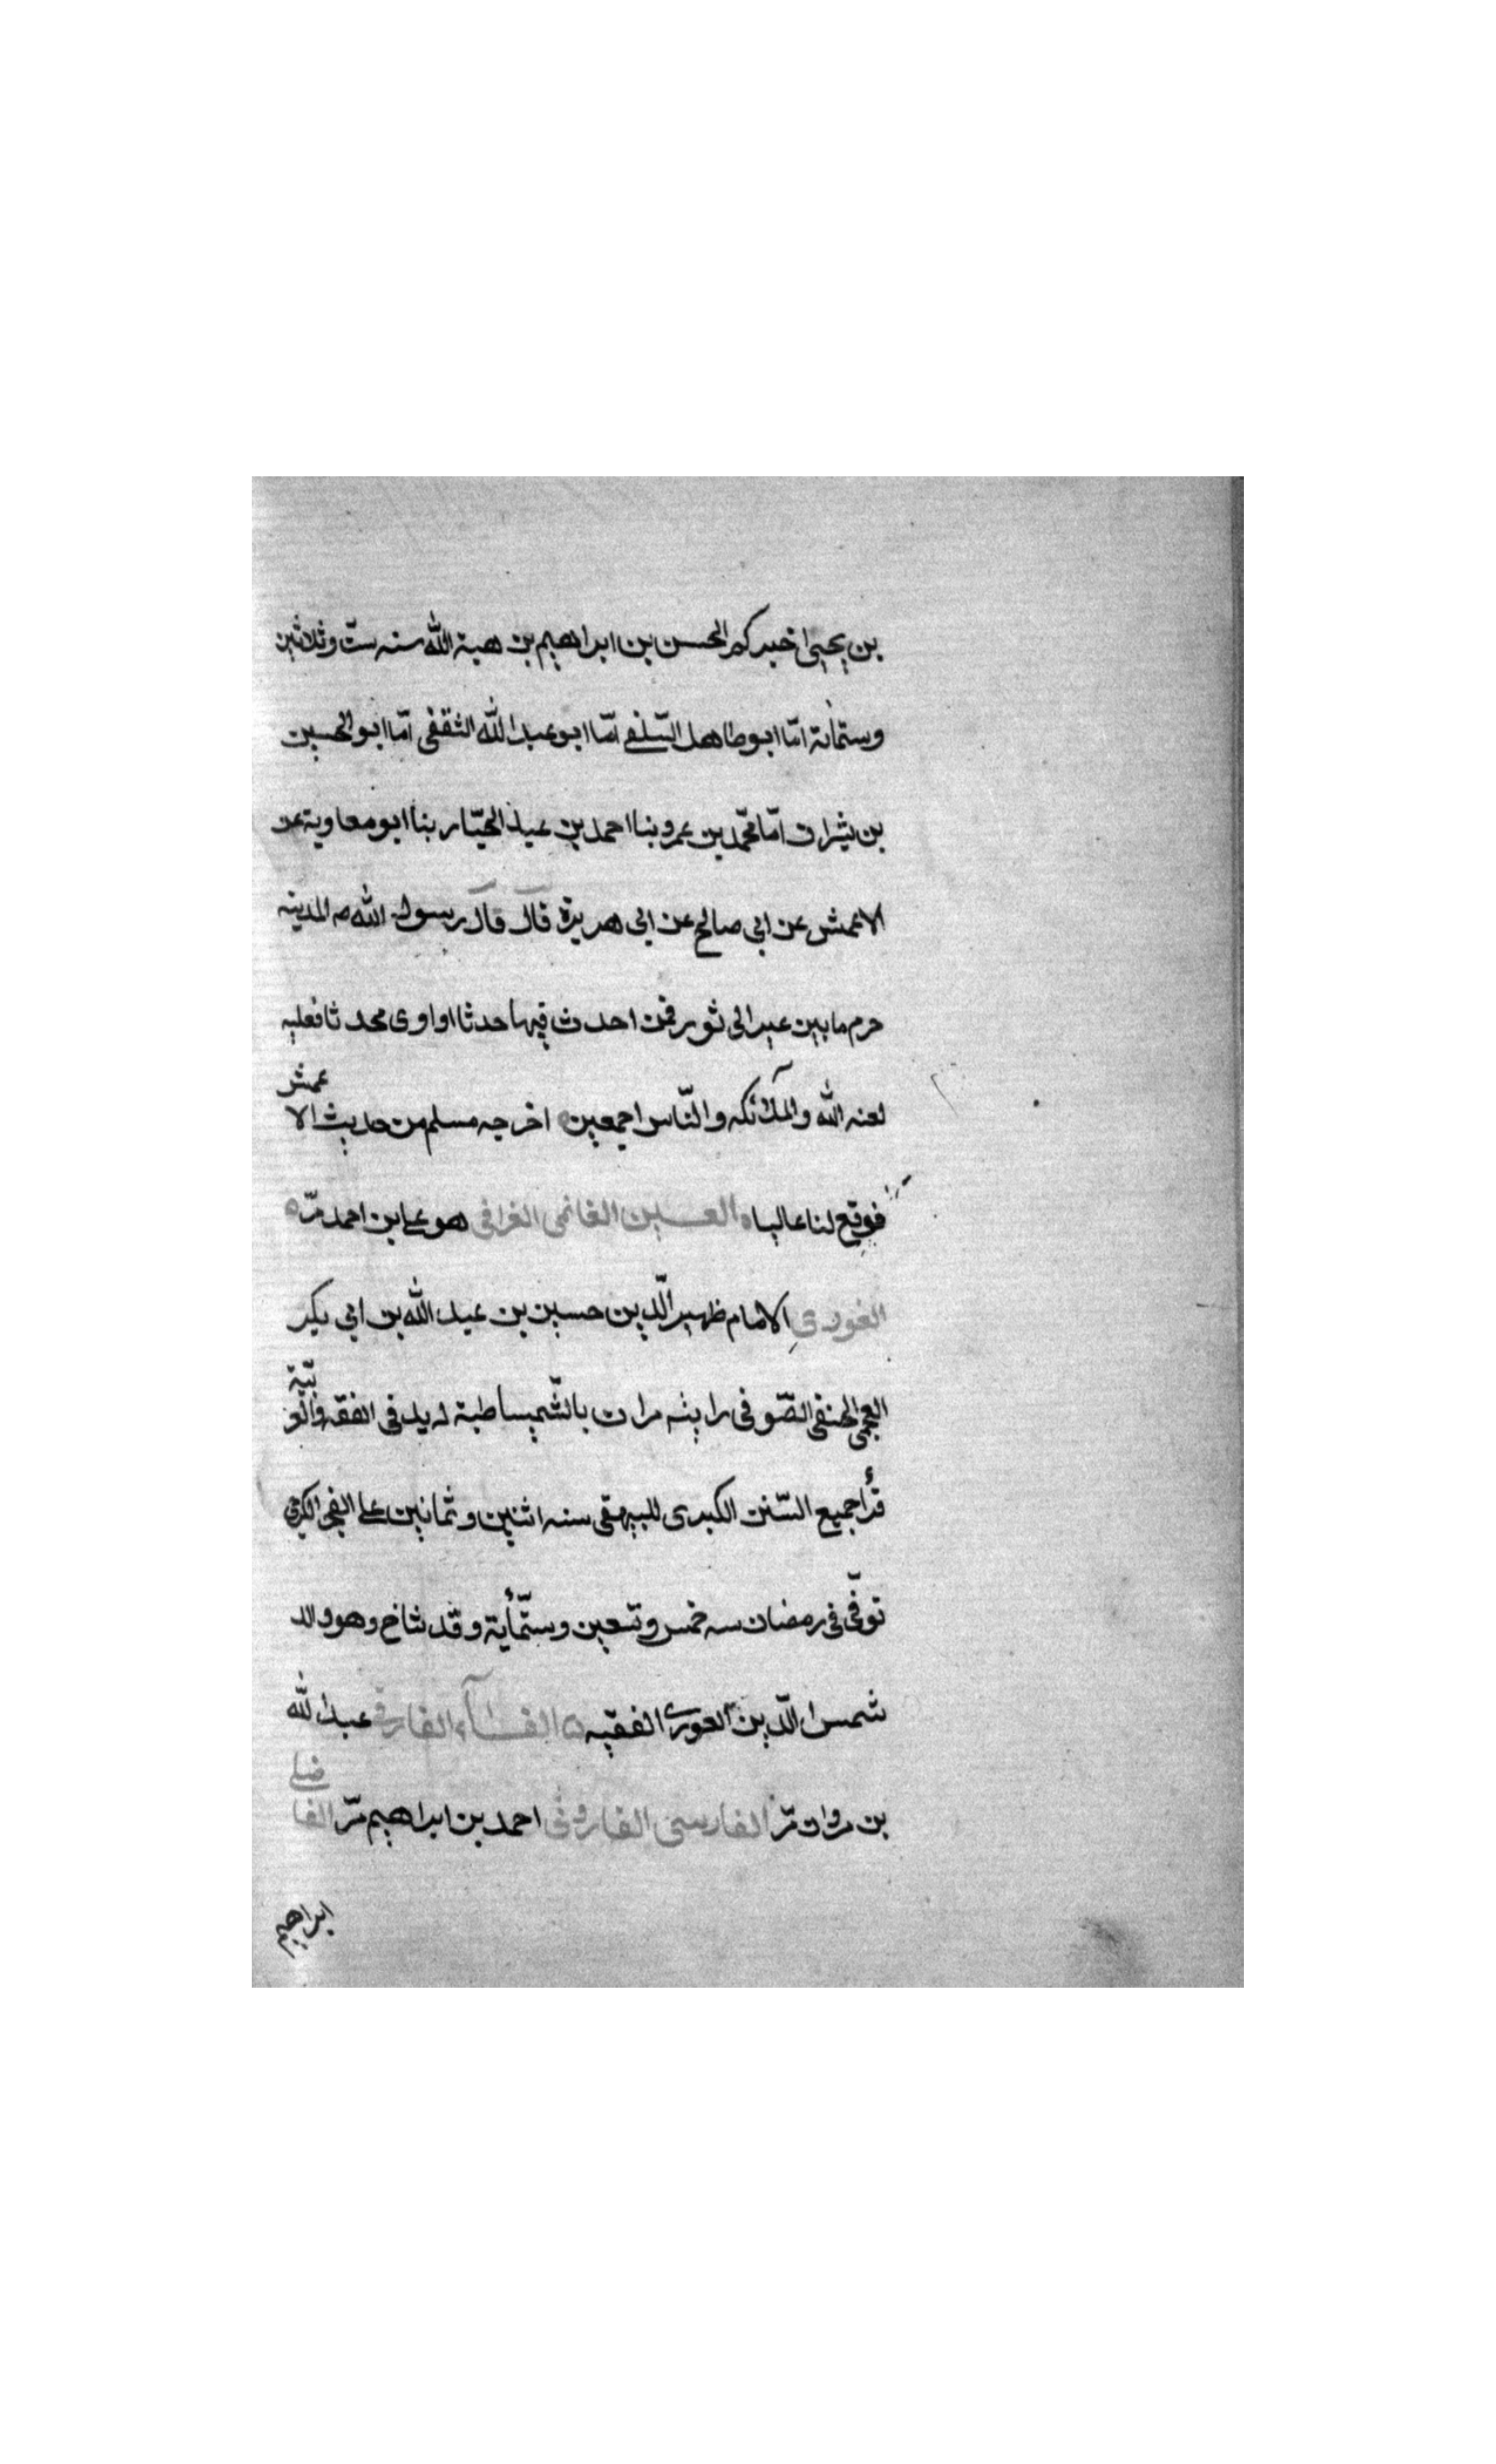 بن يحيى اخبركم الحسن بن ابراهيم بن هبة الله سنه ستّ وثلاثين
وستمائة انا ابو طاهر السّلفى انا ابو عبد الله الثقفى انا ابو الحسين
بن بشران انا محمّد بن عمرو بنا احمد بن عبد الجبّار بنا ابو معاوية عن
الاعمش عن ابي صالح عن ابى هريرة قال قال رسول الله صـ المدينه
حرم مابين عير الى ثور فمن احدث فيها حدثا او اوى محدثا فعليه
لعنه الله والملائكه والنّاس اجمعين اخرجه مسلم من حديث الاعمش
فوقع لنا عاليا ه الغانمى الغرافى هو على بن احمد مرّ ه
الغورى الامام ظهير الّدين حسين بن عبد الله بن ابي بكر
العجمى الحنفى الصّوفى رايته مرات بالشّميساطية له يد فى الفقه والعربيّة
قرأ جميع السّنن الكبرى للبيهقى سنه اثنين وثمانين على الفخر الكرجى
توفّى فى رمضان سه خمس وتسعين وستّمأية وقد شاخ وهو والد
شمس الّدين الغورى الفقيه ه الفارقى عبد الله
بن مروان مرّ الفارسى الفاروثى احمد بن ابراهيم مرّ الفاضلى
ابراهيم